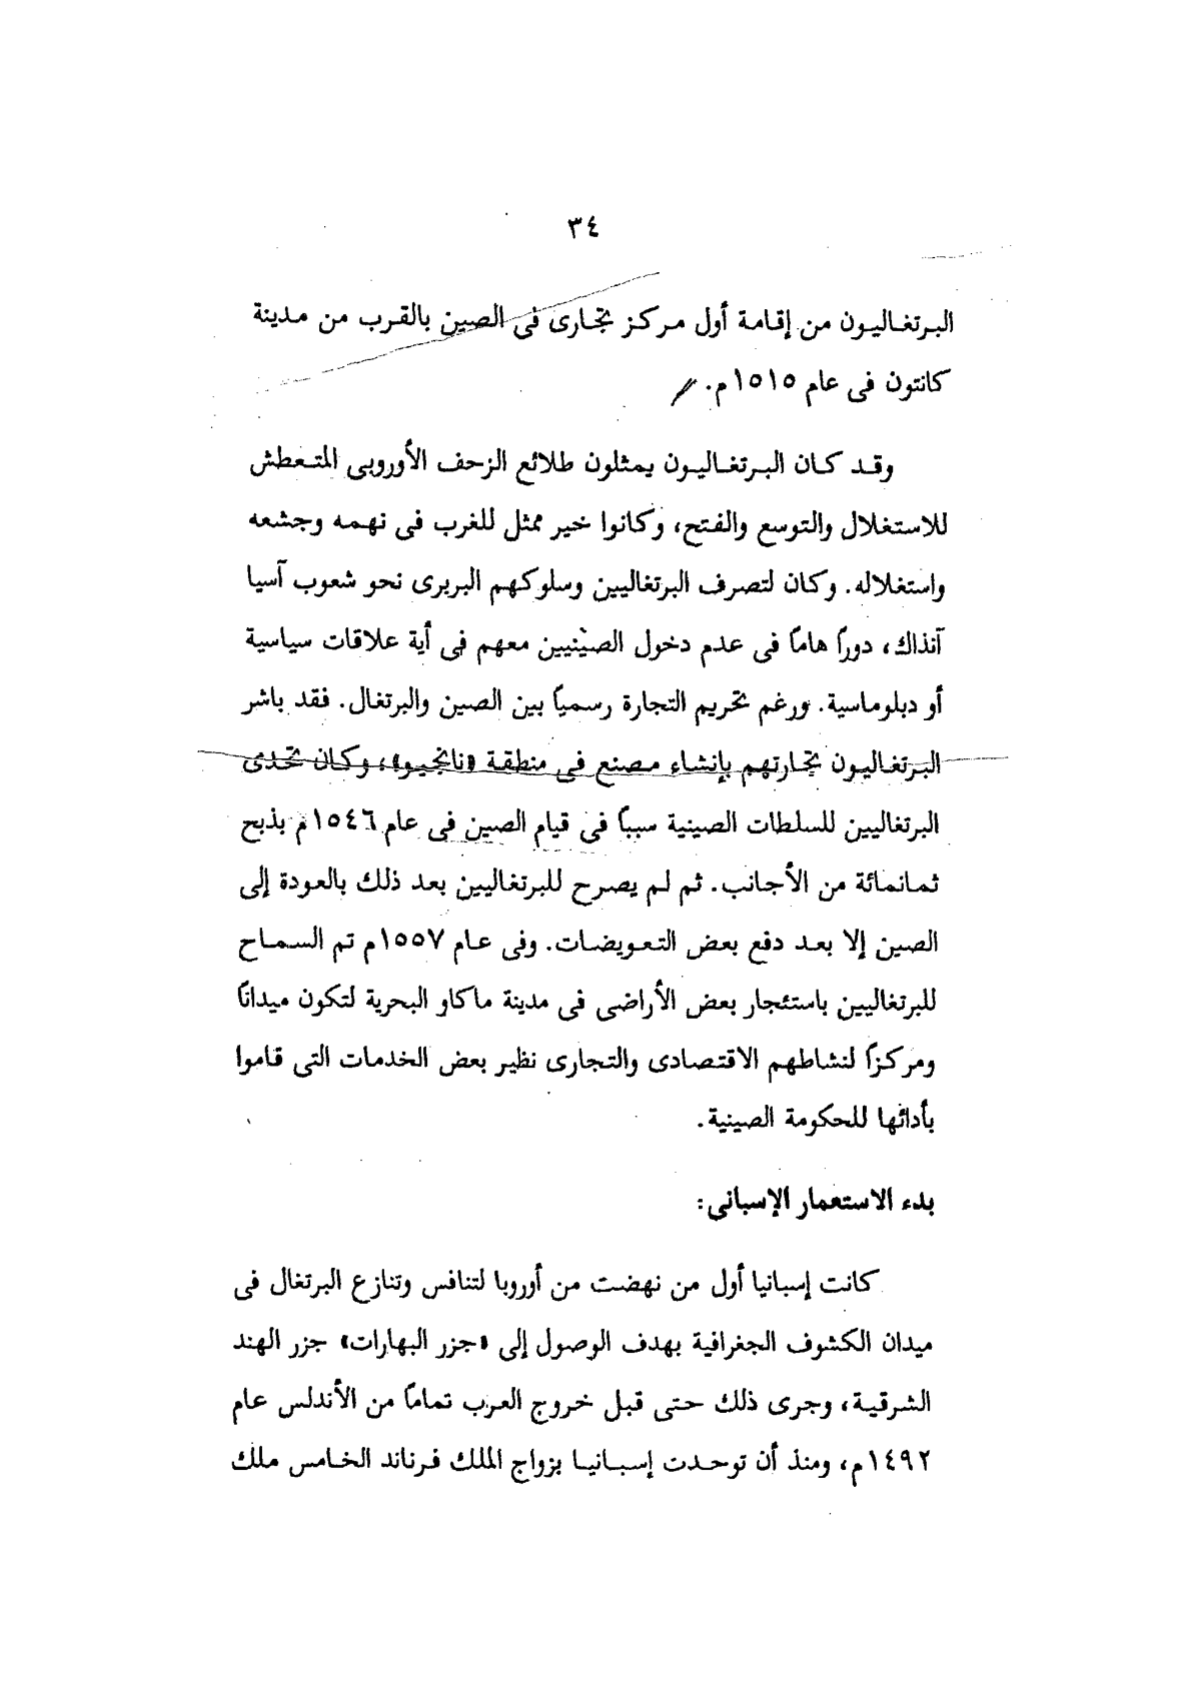 ٣٤
البرتغاليون من إقامة أول مركز تجارى فى الصين بالقرب من مدينة
كانتون فى عام ١٥١٥م.
وقد كان البرتغاليون يمثلون طلائع الزحف الأوروبى المتعطش
للاستغلال والتوسع والفتح، وكانوا خير ممثل للغرب فى نهمه وجشعه
واستغلاله. وكان لتصرف البرتغاليين وسلوكهم البربرى نحو شعوب آسيا
آنذاك، دورًا هامًا فى عدم دخول الصينيين معهم فى أية علاقات سياسية
أو دبلوماسية. ورغم تحريم التجارة رسميًا بين الصين والبرتغال. فقد باشر
البرتغاليون تجارتهم بإنشاء مصنع فى منطقة «نانجيو»، وكان تحدى
البرتغاليين للسلطات الصينية سببًا فى قيام الصين فى عام ١٥٤٦م بذبح
ثمانمائة من الأجانب. ثم لم يصرح للبرتغاليين بعد ذلك بالعودة إلى
الصين إلا بعد دفع بعض التعويضات. وفى عام ١٥٥٧م تم السماح
للبرتغاليين باستئجار بعض الأراضى فى مدينة ماكاو البحرية لتكون ميدانًا
ومركزًا لنشاطهم الاقتصادى والتجارى نظير بعض الخدمات التى قاموا
بأدائها للحكومة الصينية.
بدء الاستعمار الإسبانى:
كانت إسبانيا أول من نهضت من أوروبا لتنافس وتنازع البرتغال فى
ميدان الكشوف الجغرافية بهدف الوصول إلى «جزر البهارات» جزر الهند
الشرقية، وجرى ذلك حتى قبل خروج العرب تمامًا من الأندلس عام
١٤٩٢م، ومنذ أن توحدت إسبانيا بزواج الملك فرناند الخامس ملك